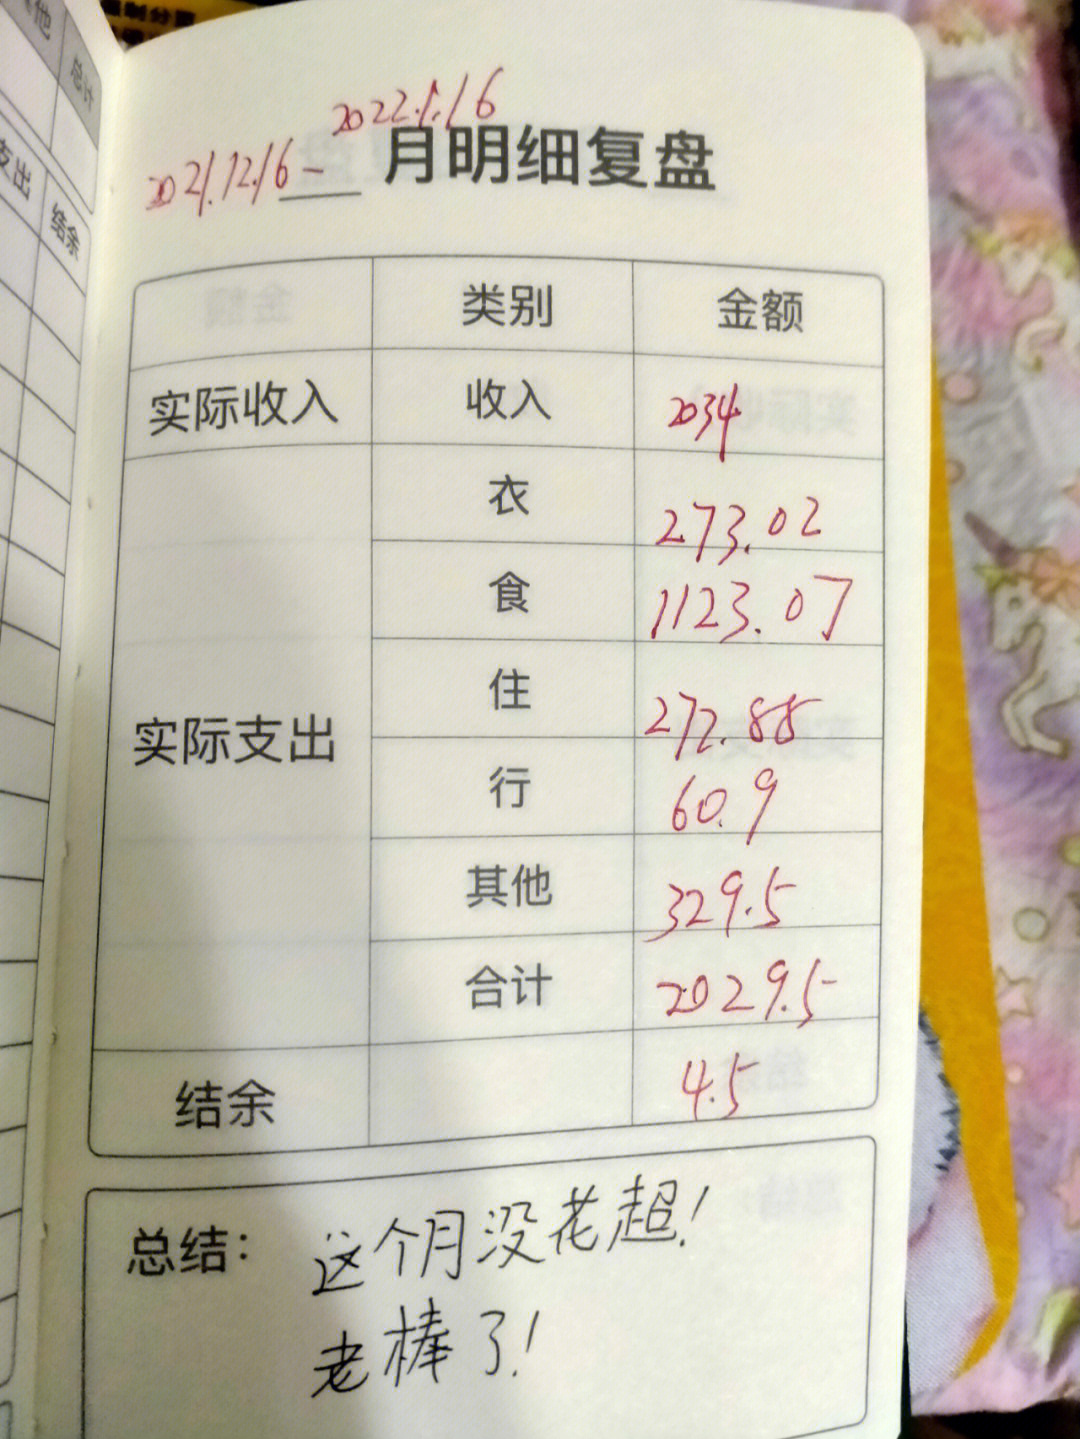 其他
总计
支出
结余
2022.1.16
2021.12.16- 月明细复盘
类别 金额
实际收入 收入 2034
衣 273.02
食 1123.07
住 272.88
实际支出
行 60.9
其他 329.5
合计 2029.5
结余 4.5
总结： 这个月没花超！
老棒了！